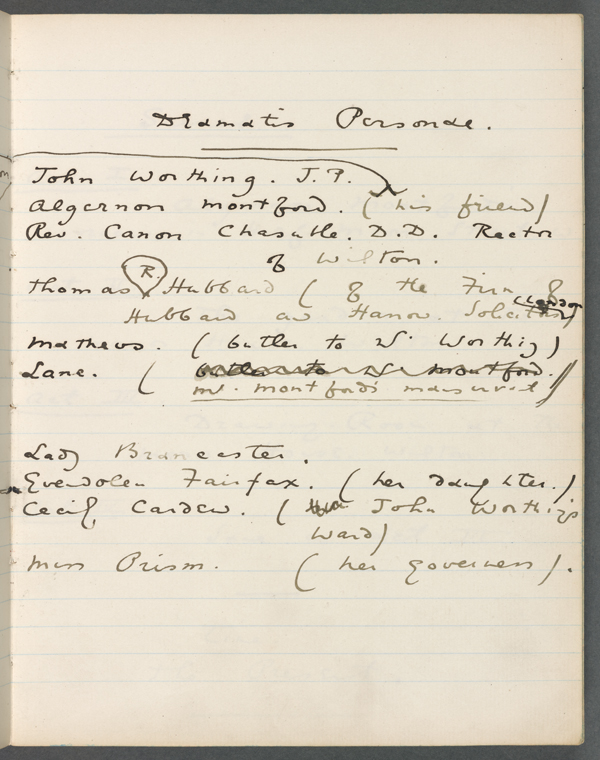 Dramatis Personae.
John Worthing. J.P.
Algernon Montford. (his friend)
Rev. Canon Chasuble. D.D. Rector
of Wilton.
Thomas R. Hubbard (of the Firm of
London
Hubbard and Hanow. Solicitors)
Mathews. (butler to Mr Worthing)
Lane. ( butler to Mr Montford.
Mr. Montford's manservant)
Lady Brancaster.
Gwendolen Fairfax. (her daughter.)
Cecily Cardew. ( John Worthing's
ward)
Miss Prism. (her governess).